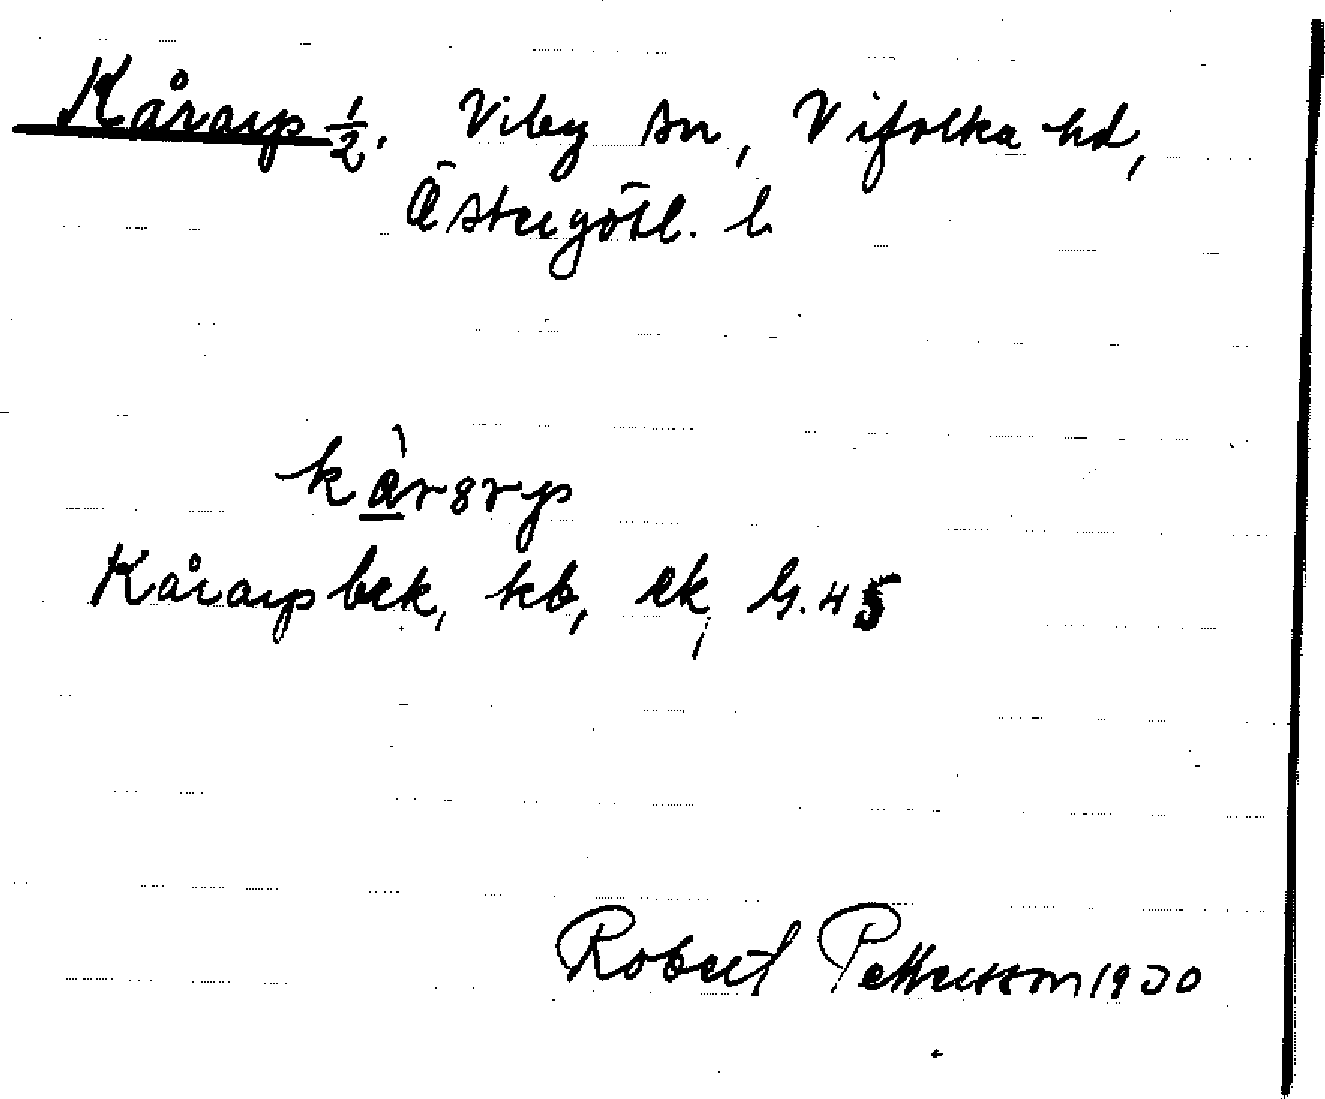 Kårarp 1/2. Viby sn, Vifolka hd,
Östergötl. l.
Kårarp bek, kb, ek; G. 45
Robert Pettersson 1930